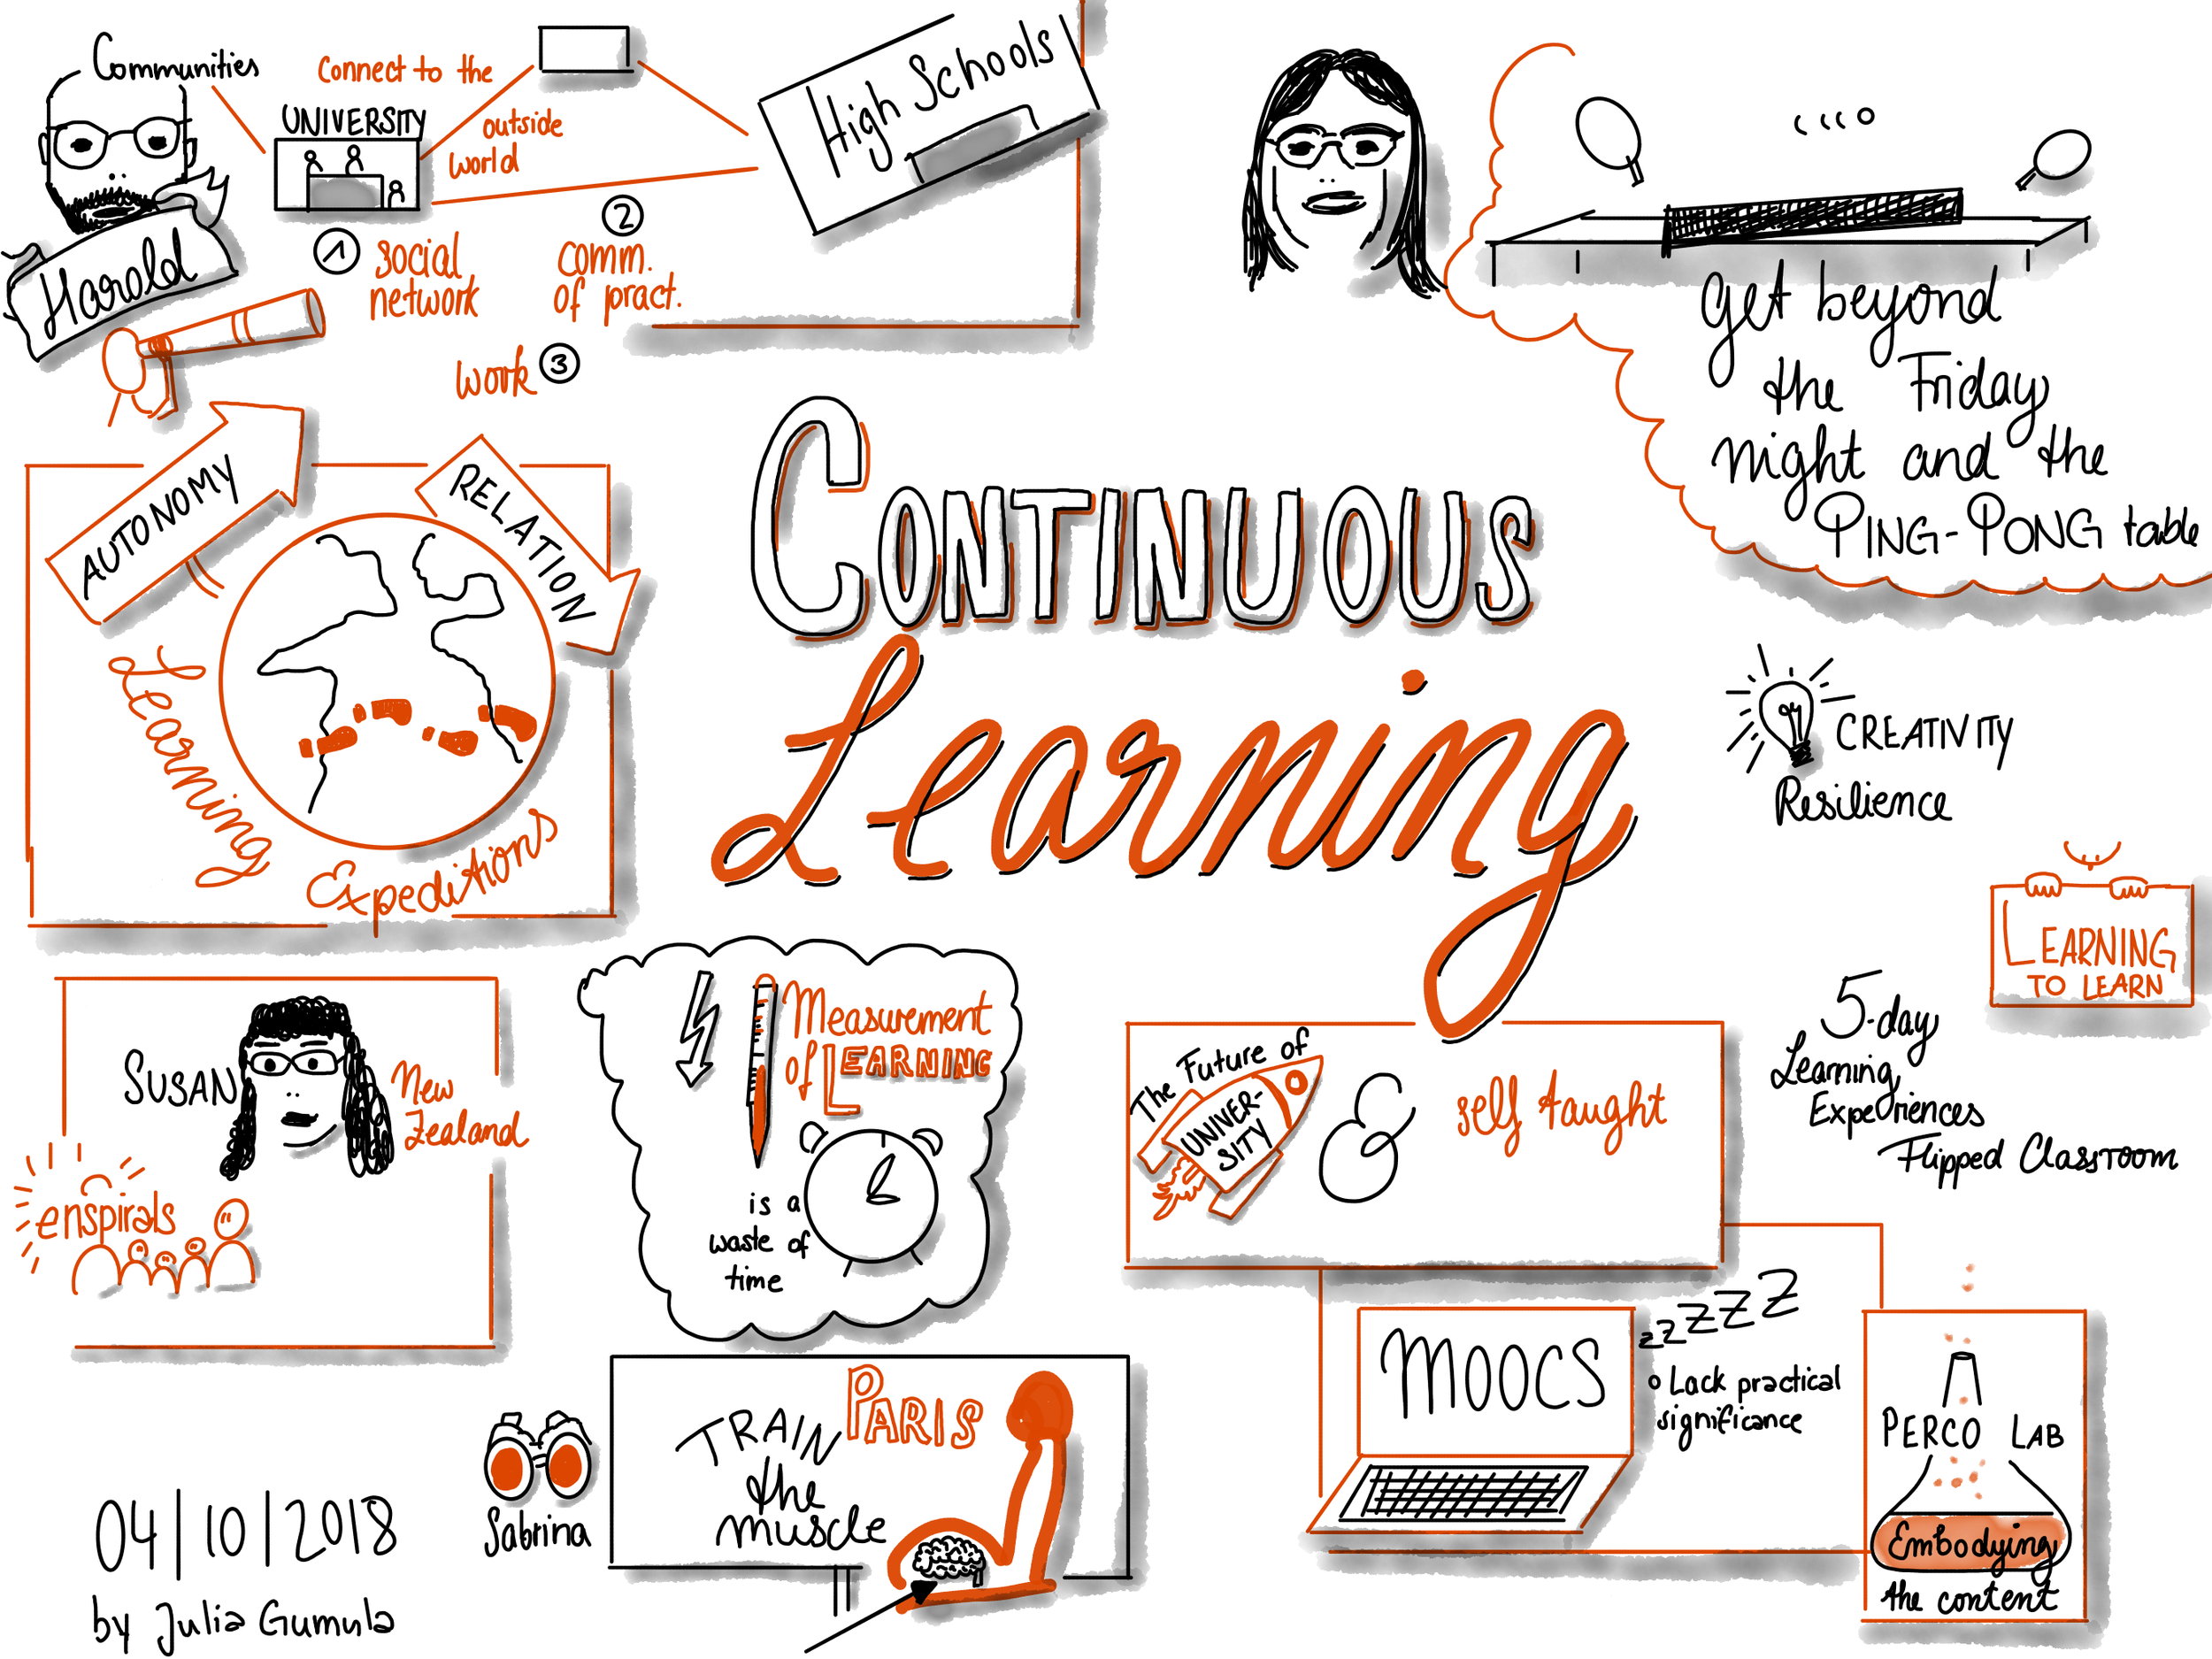 Communities
Connect to the
outside
world
UNIVERSITY
High Schools
Harold
1 social
network
2
comm.
of pract.
work 3
get beyond
the Friday
night and the
PING-PONG table
AUTONOMY
RELATION
Learning
Expeditions
CONTINUOUS
Learning
CREATIVITY
Resilience
LEARNING
TO LEARN
5-day
Learning
Experiences
Flipped Classroom
SUSAN
New
Zealand
enspirals
Measurement
of LEARNING
is a
waste of
time
The Future of
UNIVER-
SITY
&
self taught
MOOCS
zzzzZ
Lack practical
significance
PERCO LAB
Embodying
the content
Sabrina
PARIS
TRAIN
the
muscle
04/10/2018
by Julia Gumula